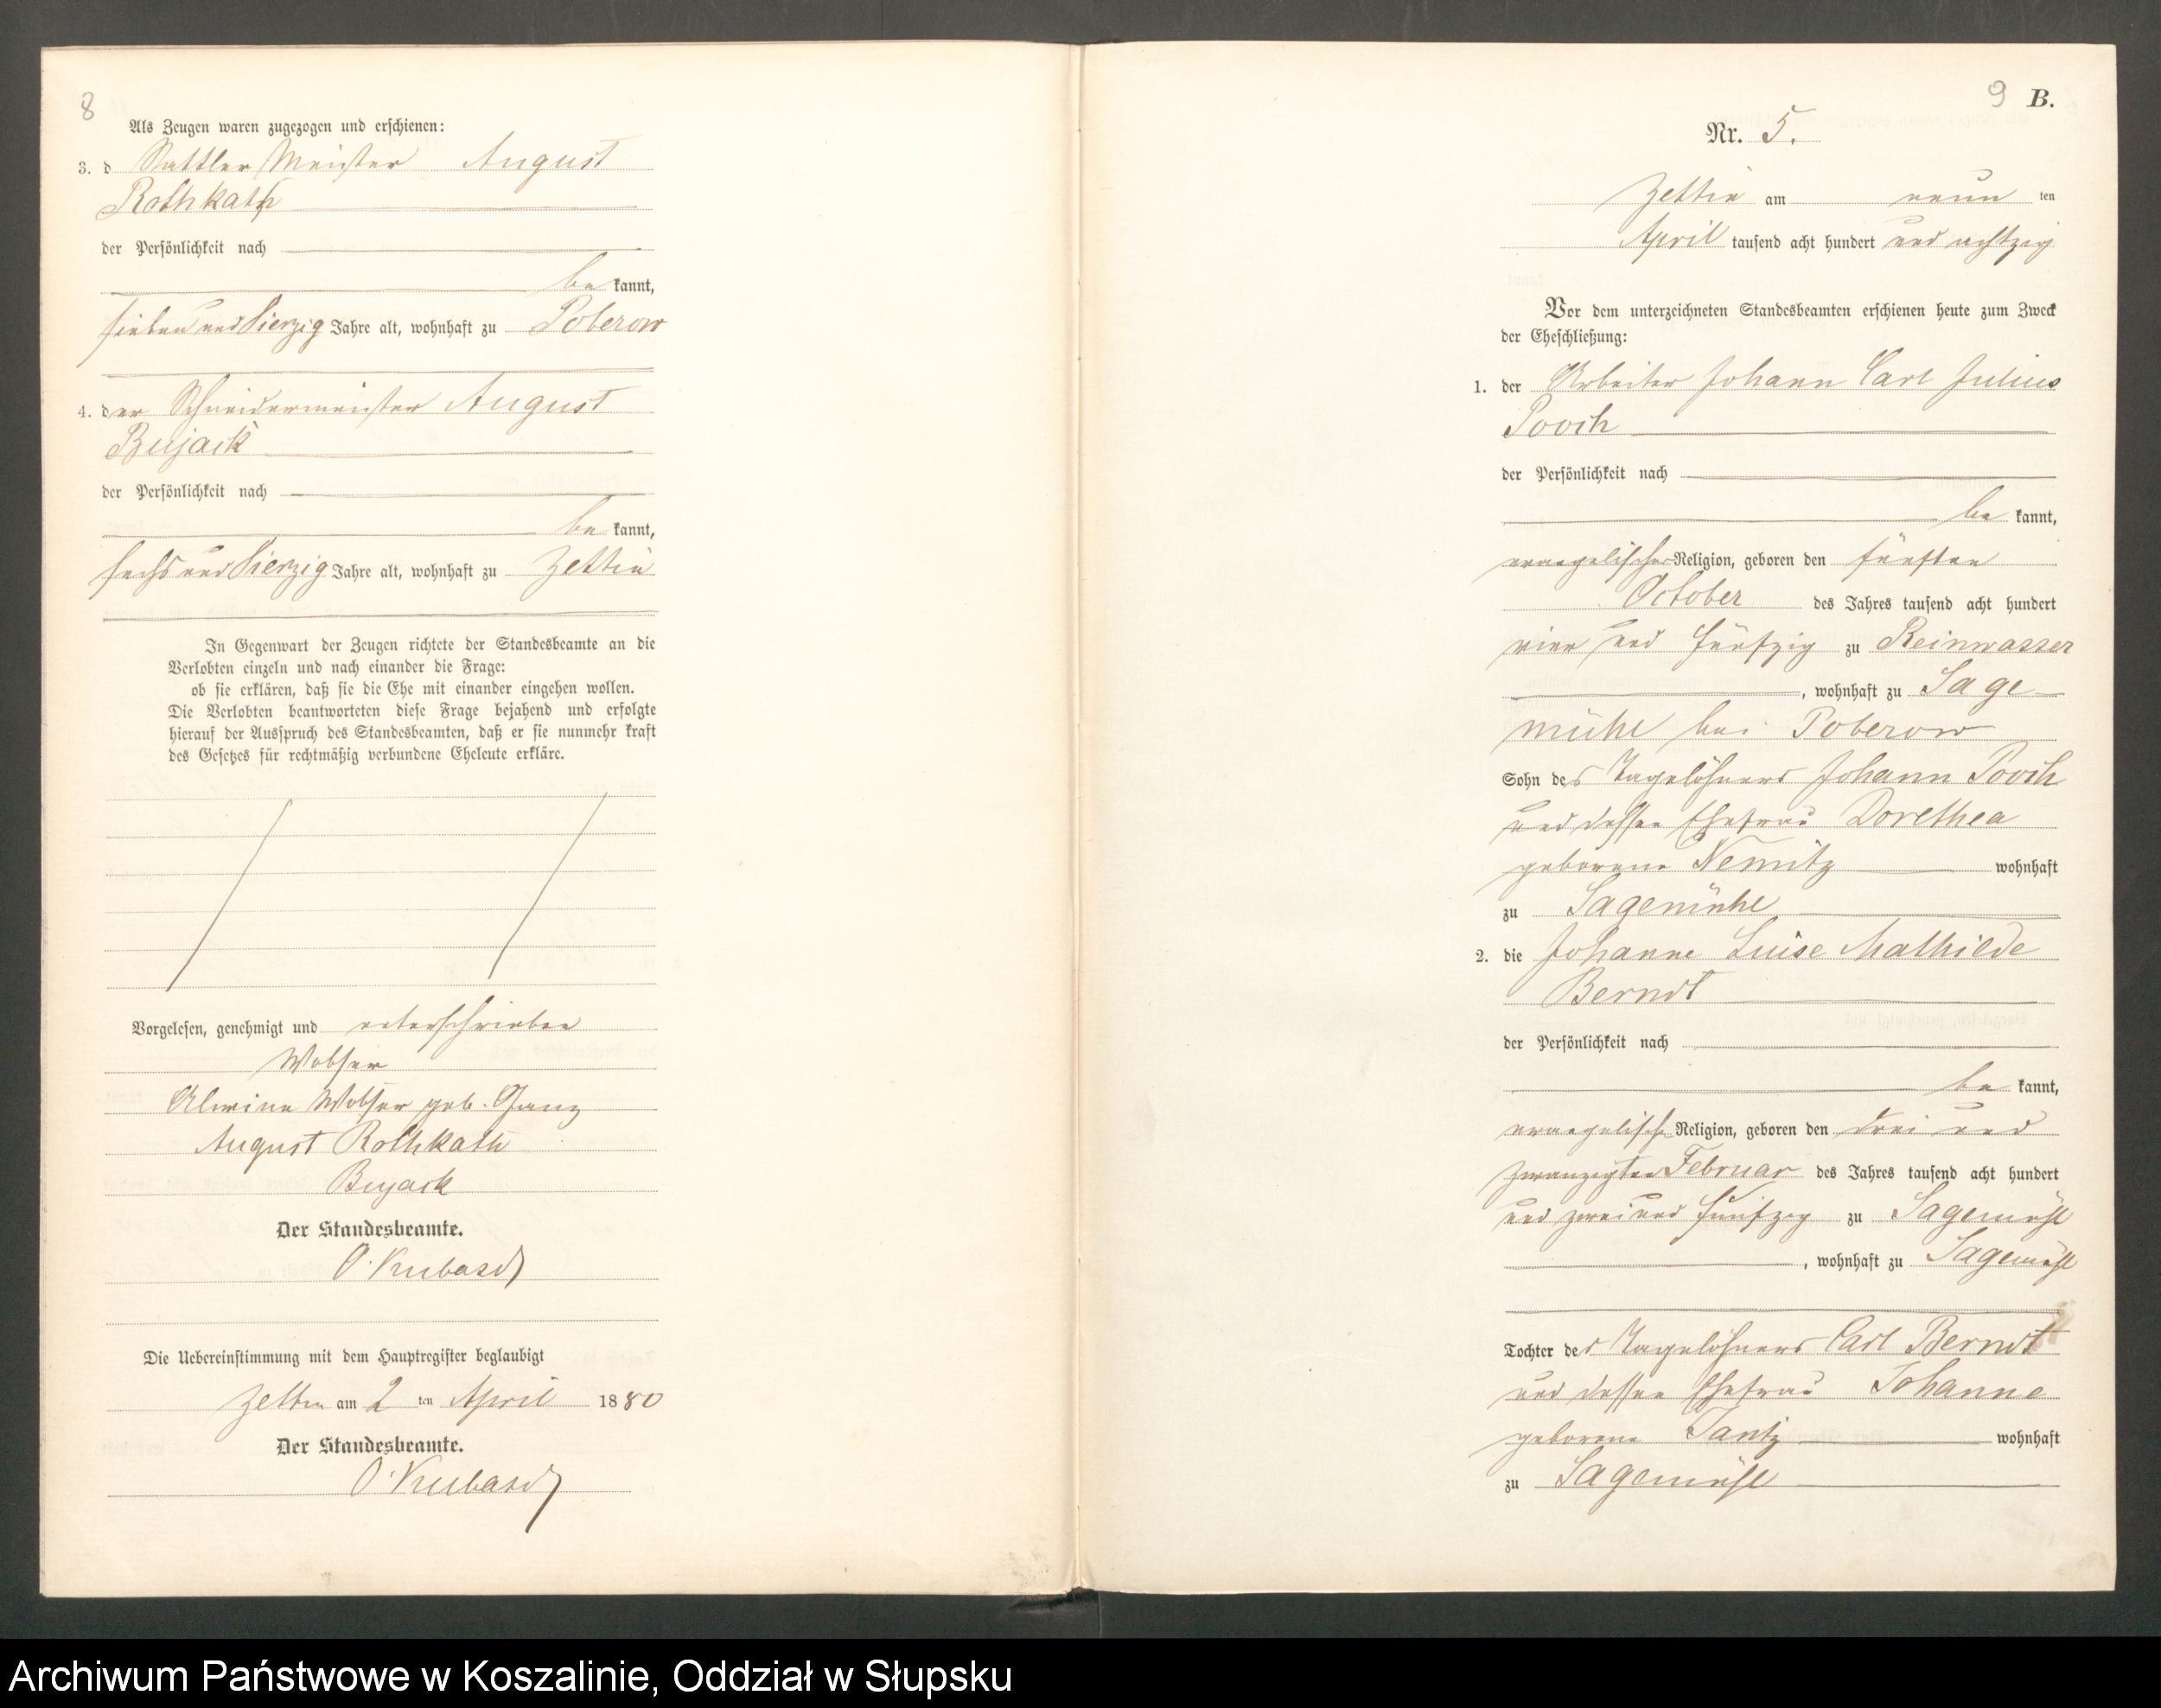 8
Als Zeugen waren zugezogen und erschienen:
3. d Sattler Meister August
Rothkath
der Persönlichkeit nach
be kannt,
sieben und Vierzig Jahre alt, wohnhaft zu Poberow
4. der Schneidermeister August
Bujack
der Persönlichkeit nach
be kannt,
sechs und Vierzig Jahre alt, wohnhaft zu Zettin
In Gegenwart der Zeugen richtete der Standesbeamte an die
Verlobten einzeln und nach einander die Frage:
ob sie erklären, daß sie die Ehe mit einander eingehen wollen.
Die Verlobten beantworteten diese Frage bejahend und erfolgte
hierauf der Ausspruch des Standesbeamten, daß er sie nunmehr kraft
des Gesetzes für rechtmäßig verbundene Eheleute erkläre.
Vorgelesen, genehmigt und unterschrieben
Wobser
Alwine Wobser geb. Ganz
August Rothkath
Bujack
Der Standesbeamte.
O. Kubasch
Die Uebereinstimmung mit dem Hauptregister beglaubigt
Zettin am 2 ten April 1880
Der Standesbeamte.
O. Kubasch
9 B.
Nr. 5.
Zettin am neun ten
April tausend acht hundert und achtzig
Vor dem unterzeichneten Standesbeamten erschienen heute zum Zweck
der Eheschließung:
1. der Arbeiter Johann Carl Julius
Pooch
der Persönlichkeit nach
be kannt,
evangelischer Religion, geboren den fünften
October des Jahres tausend acht hundert
vier und fünfzig zu Reinwasser
, wohnhaft zu Sage
mühl bei Poberow
Sohn des Tagelöhners Johann Pooch
und dessen Ehefrau Dorethea
geborene Nemitz wohnhaft
zu Sagemühl
2. die Johanne Luise Mathilde
Berndt
der Persönlichkeit nach
be kannt,
evangelische Religion, geboren den drei und
zwanzigten Februar des Jahres tausend acht hundert
und zwei und fünfzig zu Sagemühl
, wohnhaft zu Sagemühl
Tochter des Tagelöhners Carl Berndt
und dessen Ehefrau Johanne
geborene Tantz wohnhaft
zu Sagemühl
Archiwum Państwowe w Koszalinie, Oddział w Słupsku